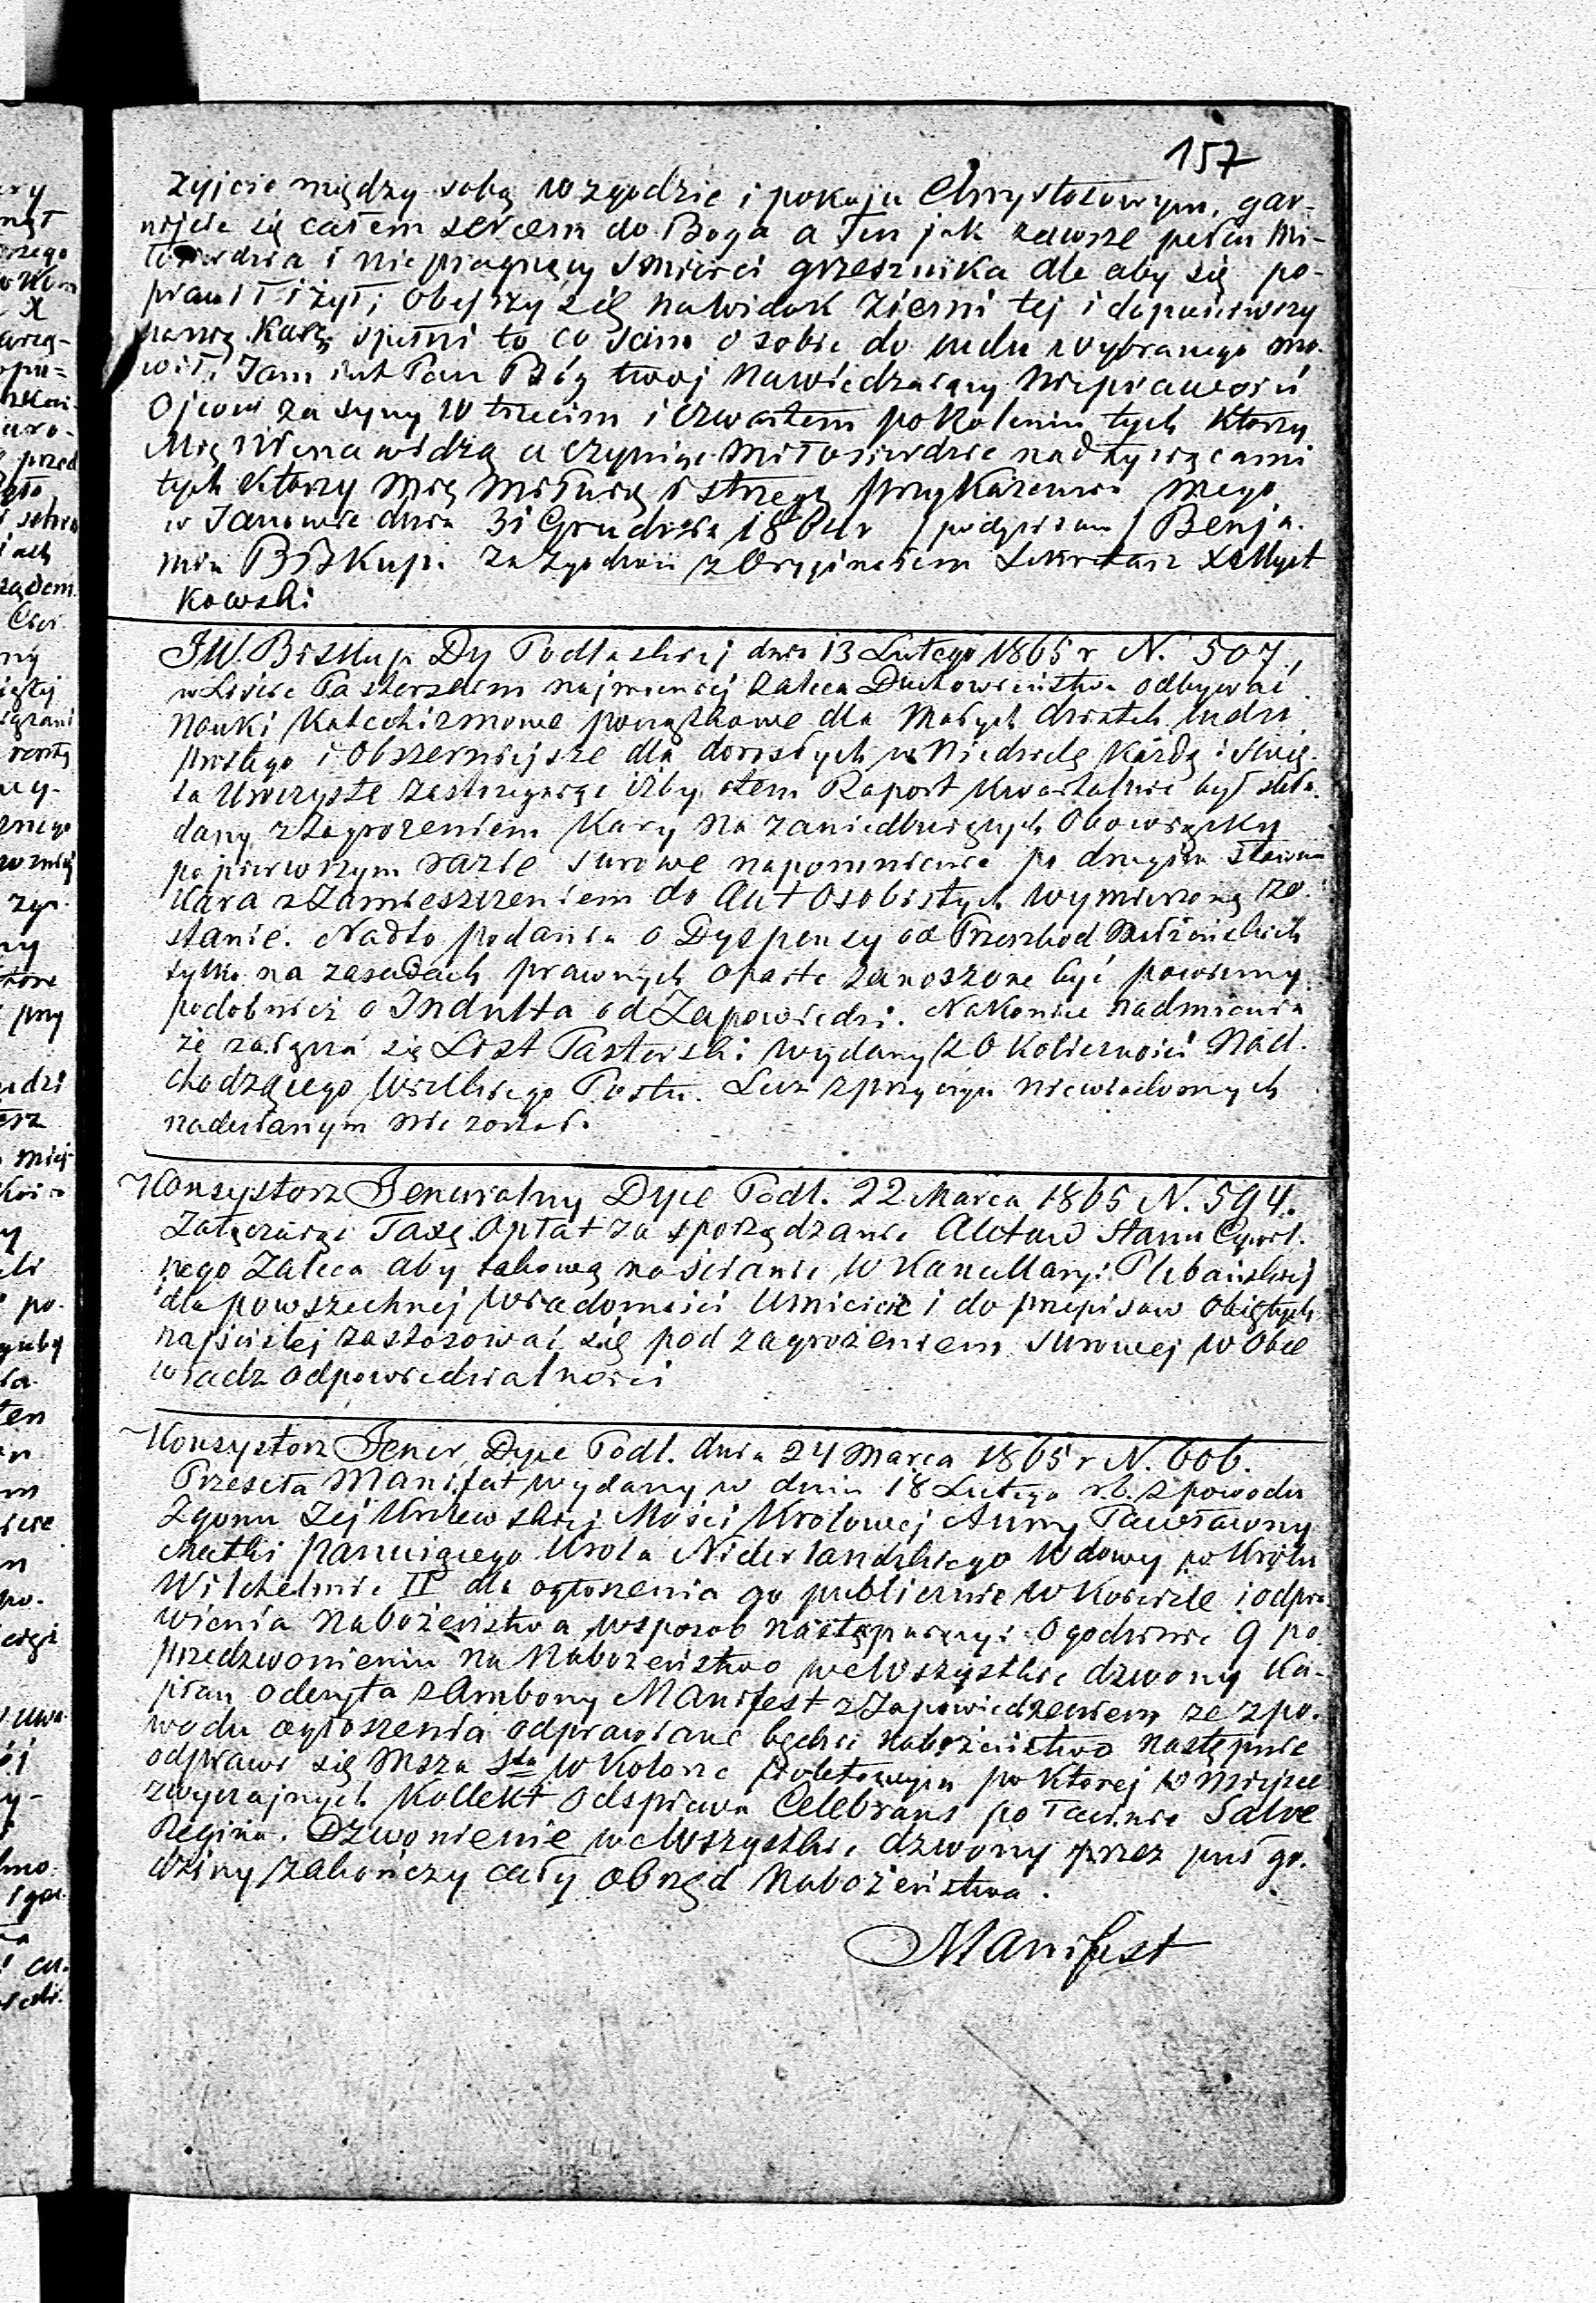 157
żyjcie między sobą w zgodzie i pokoju Chrystusowym, gar-
nijcie się całem sercem do Boga a Ten jak zawsze pełen Mi-
łosierdzia i nie pragnący śmierci grzesznika ale aby się po-
prawił i żył, obejrzy się na widok ziemi tej i dopuściwszy
karę spełni to co sam o sobie do ludu wybranego mó-
wił, Jam jest Pan Bóg twój Nawiedzający Nieprawości
Ojców za syny w trzecim i czwartem pokoleniu tych którzy
Mię Nienawidzą a czyniąc Miłosierdzie nad tysiącami
tych którzy mię miłują i strzegą przykazania mego
w Janowie dnia 31 Grudnia 1864 r /podpisano/ Benja-
min Biskup. Za zgodność z Oryginałem Sekretarz X Myst
kowski
JW. Biskup Dy Podlaskiej dnia 13 Lutego 1865 r N. 507,
w Liście Pasterskim najmocniej zaleca Duchowieństwu odbywać
Nauki Katechizmowe początkowe dla Małych dziatek, ludu
prostego i obszerniejsze dla dorosłych w Niedzielę każdą i Świę-
ta Uroczyste zastrzegając iżby o tem Raport kwartalnie był skła-
dany z zagrożeniem Kary na zaniedbujących Obowiązki
po pierwszym razie surowe napomnienie po drugim
Kara z zamieszczeniem do Akt Osobistych wymierzoną zo-
stanie. Nadto podania o Dyspensy od Przeszkod Małżeńskich
tylko na zasadach prawnych oparte zanoszone być powinny
podobnież o Indulta od Zapowiedzi. Nakoniec nadmienia
że załącza się List Pasterski wydany z Okoliczności Nad-
chodzącego Wielkiego Postu. Lecz z przyczyn niewiadomych
nadesłanym nie został.
Konsystorz Jeneralny Dyec Podl. 22 Marca 1865 N. 594.
Załączając Taxę Opłat za sporządzanie Aktow Stanu Cywil-
nego Zaleca aby takową na ścianie w Kancellaryi Plebańskiej
dla powszechnej wiadomości Umieścić i do przepisow objętych
najściślej zastosować się pod zagrożeniem surowej w obec
władz odpowiedzialności
Konsystorz Jener. Dyec Podl. dnia 24 Marca 1865 r N. 606.
Przeseła Manifest wydany w dniu 18 Lutego r.b. z powodu
Zgonu Jej Krolewskiej Mości Krolowej Anny Pawłowny
Matki panującego Krola Niderlandzkiego Wdowy po Krolu
Wilchelmie II dla ogłoszenia go publicznie w Kościele i odpra-
wienia Nabożeństwa w sposob następujący: O godzinie 9 po
przedzwonieniu na Nabożeństwo we Wszystkie dzwony Ka-
płan odczyta z Ambony Manifest z zapowiedzeniem ze z po-
wodu ogłoszenia odprawiane będzie nabożeństwo następnie
odprawi się Msza Sta w Kolorze fioletowym po ktorej w miejsce
zwyczajnych Kollekt odśpiewa Celebrans po łacinie Salve
Regina. Dzwonienie we Wszystkie dzwony przez puł go-
dziny zakończy cały obrzęd Nabożeństwa.
Manifest